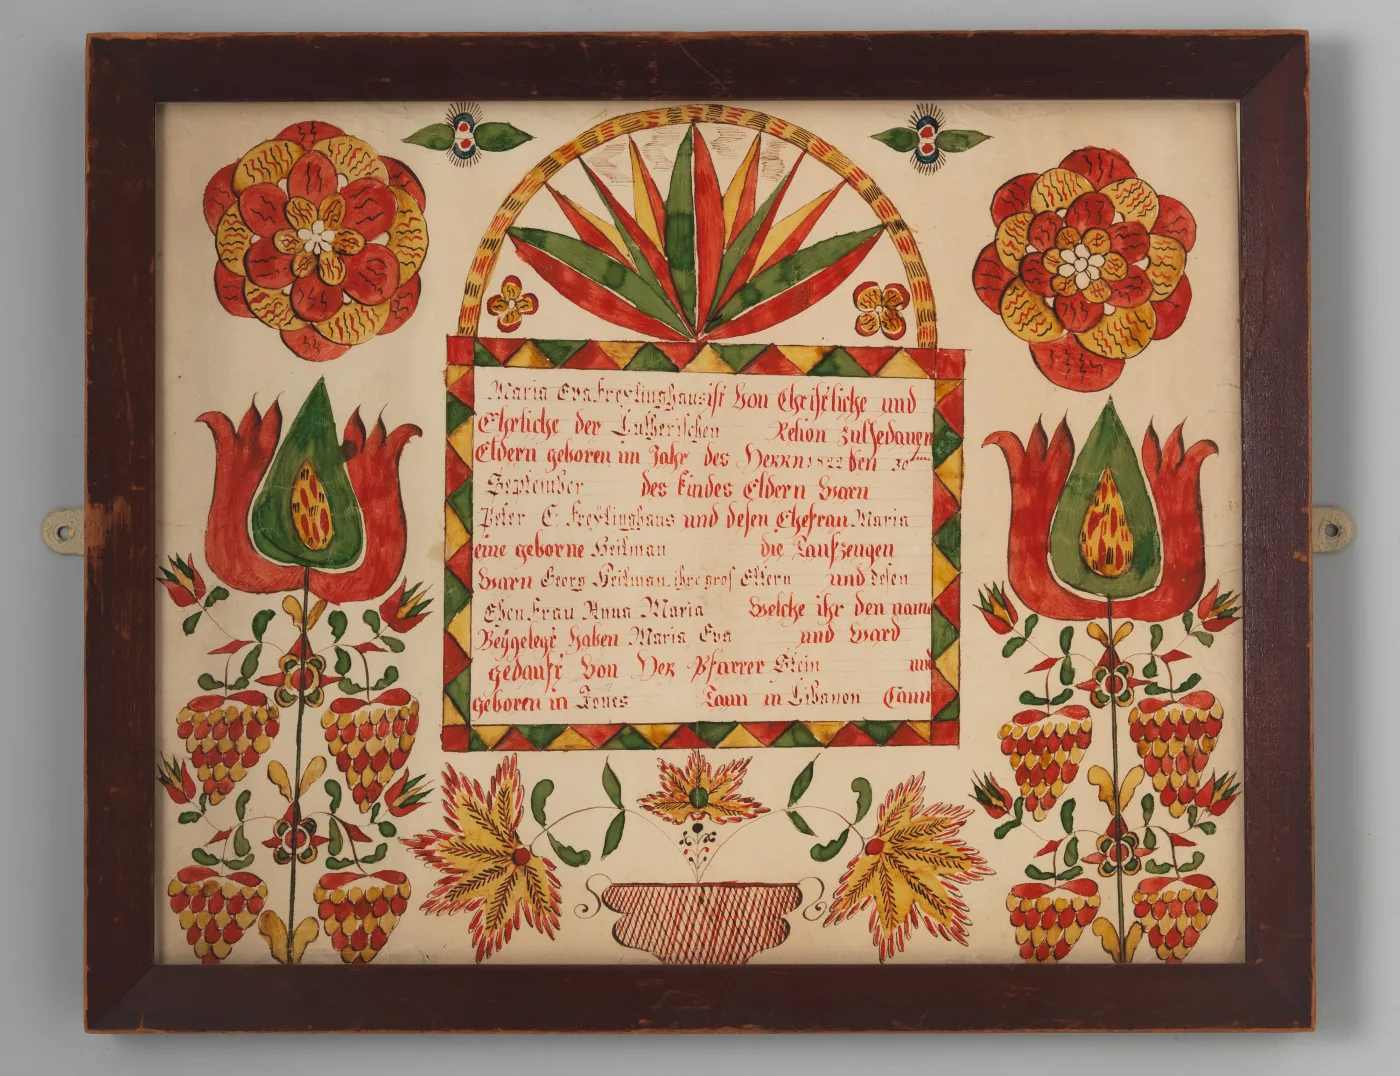 Maria Eva Freylinghaus ist Von Christliche und
Ehrliche der Lutherischen Relion Zulgedanen
Eldern geboren im Jahr des Herrn 1822 den 30ten
September des kindes Eldern Warn
Peter C. Freylinghaus und desen Ehefrau Maria
eine geborne Heilman die Taufzeugen
Warn Georg Heilman, ihre gros Eltern und desen
Ehen Frau Anna Maria Welche ihr den name
Beygelegt haben Maria Eva und Ward
gedauft Von Her Pfarrer Stein und
geboren in Jones Taun in Libanon Caun